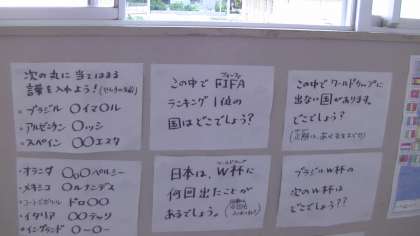 次の丸に当てはまる
言葉を入れよう！
・ブラジル ○イマ○ル
・アルゼンチン ○ッシ
・スペイン ○○エスタ
この中でFIFA
ランキング1位の
国はどこでしょう？
この中でワールドカップに
出ない国があります。
どこでしょう？
・オランダ ○。○ペルシー
・メキシコ ○ルナンデス
・コートジボワール ドロ○○
・イタリア ○○テッリ
・イングランド ○ー○ー
日本は、W杯に
何回出たことが
あるでしょう。
ブラジルW杯の
次のW杯は
どこでしょう？？